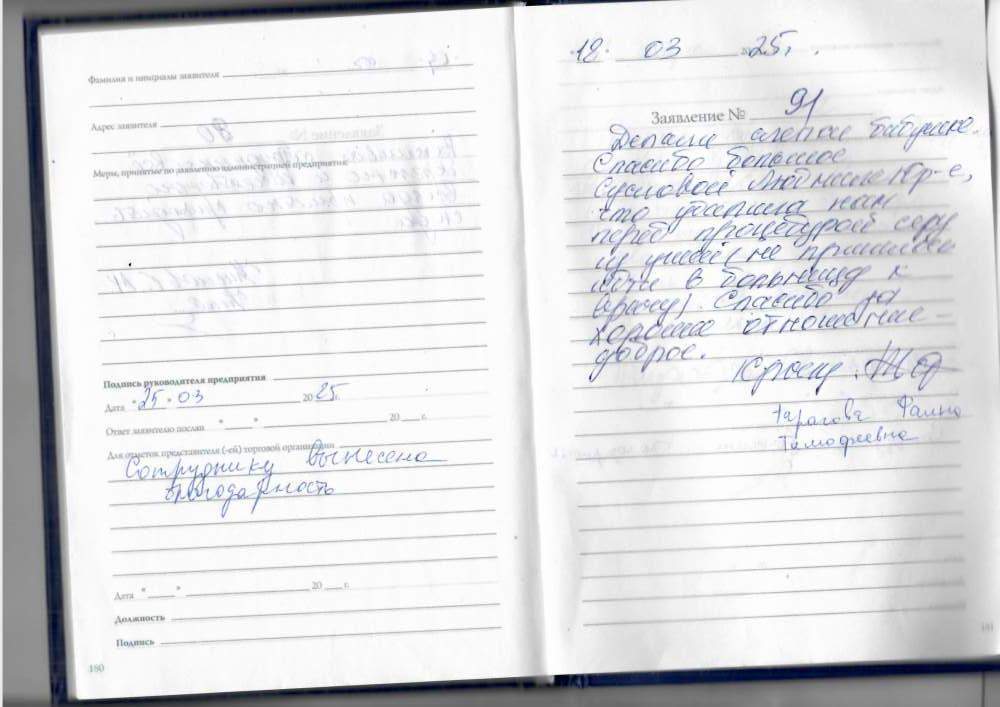 Фамилия и инициалы заявителя
Адрес заявителя
Меры, принятые по заявлению администрацией предприятия:
Подпись руководителя предприятия
Дата "25" 03 2025г.
Ответ заявителю послан " " 20 г.
Для отметок представителя (-ей) торговой организации
Сотруднику вынесена
благодарность
Дата " " 20 г.
Должность
Подпись
180
"18" 03 2025г.
Заявление № 91
Делали слепки бабушке.
Спасибо большое
Сусловой Людмиле Юр-е,
что удалила нам
перед процедурой серу
из ушей (не пришлось
идти в больницу к
врачу). Спасибо за
хорошее отношение -
доброе.
Тарасова
Тимофеевна
181